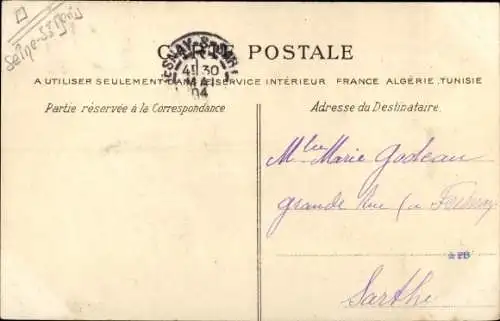 Seine-St Denis
CARTE POSTALE
A UTILISER SEULEMENT DANS LE SERVICE INTÉRIEUR FRANCE ALGÉRIE, TUNISIE
4E 30
MAI
04
Partie réservée à la Correspondance
Adresse du Destinataire.
Mlle Marie Godeau
grande Rue
Sarthe